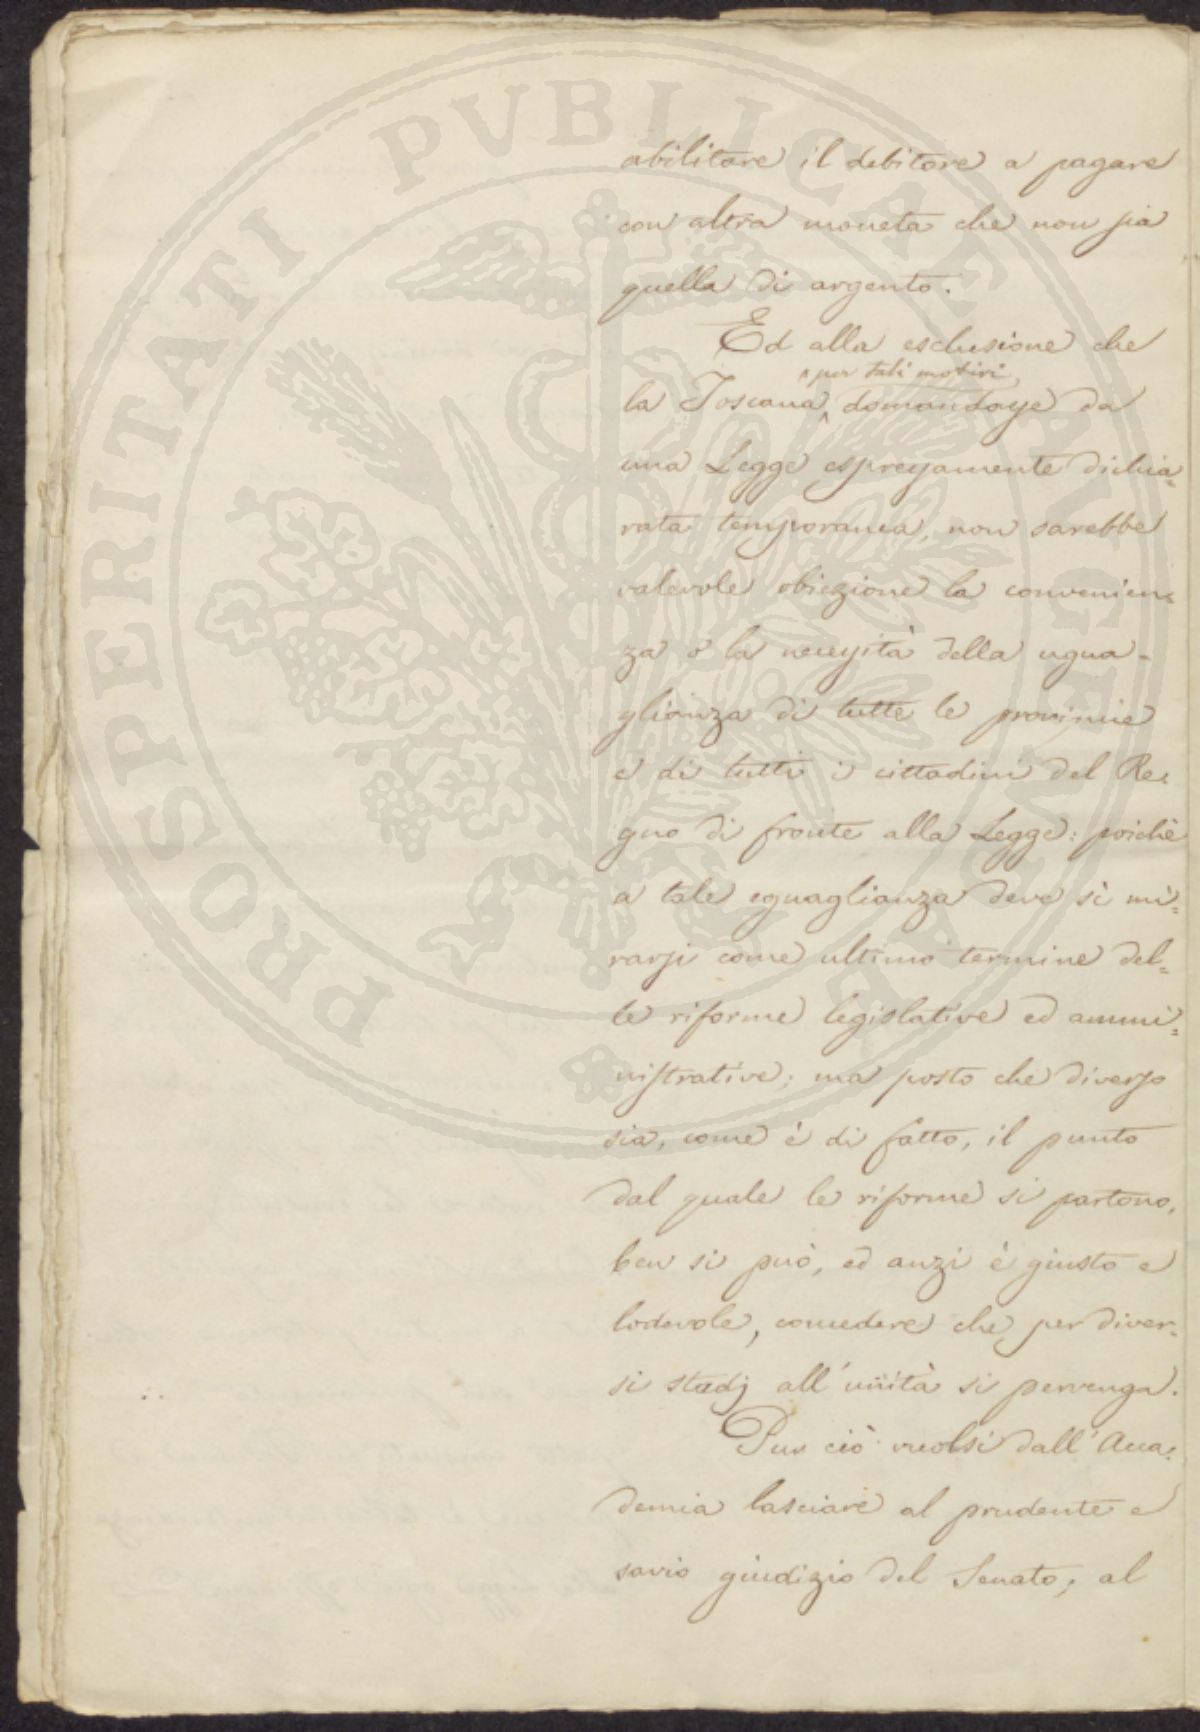 PROSPERITATI PVBLICAE AVGENDAE
abilitare il debitore a pagare
con altra moneta che non sia
quella di argento.
Ed alla esclusione che
per tali motivi
la Toscana domandasse da
una Legge espressamente dichia=
rata temporanea, non sarebbe
valevole obiezione la convenien=
za o la necessità della ugua-
glianza di tutte le provincie
e di tutti i cittadini del Re=
gno di fronte alla Legge: poichè
a tale eguaglianza deve sì mi=
rarsi come ultimo termine del=
le riforme legislative ed ammi=
nistrative; ma posto che diverso
sia, come è di fatto, il punto
dal quale le riforme si partono,
ben si può, ed anzi è giusto e
lodevole, concedere che per diver=
si stadj all'unità si pervenga.
Pur ciò vuolsi dall'Acca=
demia lasciare al prudente e
savio giudizio del Senato; al